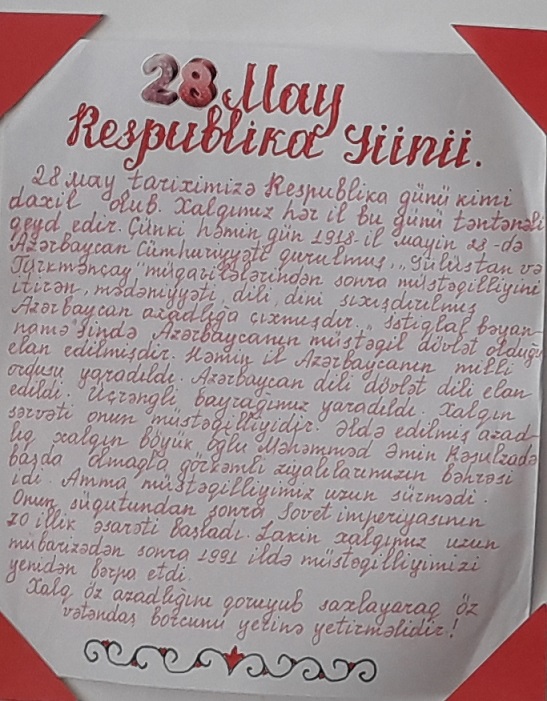 28 May
Respublika Günü.
28 May tariximizə Respublika günü kimi
daxil olub. Xalqımız hər il bu günü təntənəli
qeyd edir. Çünki həmin gün 1918-il mayın 28-də
Azərbaycan Cümhuriyyəti qurulmuş, "Gülüstan və
Türkmənçay" müqavilələrindən sonra müstəqilliyini
itirən, mədəniyyəti, dili, dini sıxışdırılmış
Azərbaycan azadlığa çıxmışdır. "İstiqlal bəyan-
namə"sində Azərbaycanın müstəqil dövlət olduğu
elan edilmişdir. Həmin il Azərbaycanın milli
ordusu yaradıldı. Azərbaycan dili dövlət dili elan
edildi. Üçrəngli bayrağımız yaradıldı. Xalqın
sərvəti onun müstəqilliyidir. Əldə edilmiş azad-
lıq xalqın böyük oğlu Məhəmməd Əmin Rəsulzadə
başda olmaqla görkəmli ziyalılarımızın bəhrəsi
idi. Amma müstəqilliyimiz uzun sürmədi.
Onun süqutundan sonra Sovet imperiyasının
70 illik əsarəti başladı. Lakin xalqımız uzun
mübarizədən sonra 1991 ildə müstəqilliyimizi
yenidən bərpa etdi.
Xalq öz azadlığını qoruyub saxlayaraq öz
vətəndaş borcunu yerinə yetirməlidir!